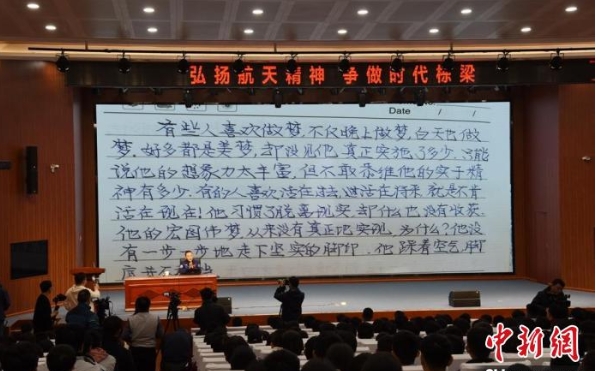 弘扬航天精神 争做时代栋梁
Date / /
有些人喜欢做梦,不仅晚上做梦,白天也做
梦,好多都是美梦,却没见他真正实施了多少,只能
说他的想象力太丰富,但不敢恭维他的实干精
神有多少,有的人喜欢活在过去,活在将来,就是不肯
活在现在!他习惯了脱离现实,却什么也没有收获,
他的宏图伟梦,从来没有真正地实现,为什么?他没
有一步一步地走下坚实的脚印,他踩着空气,脚
中新网